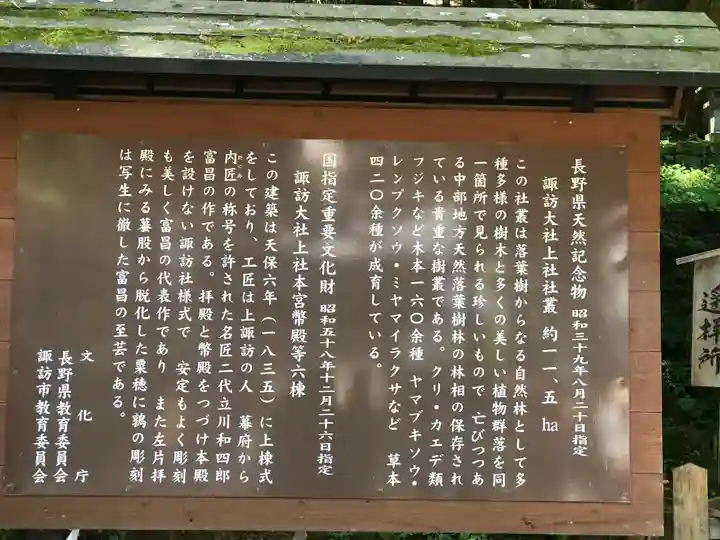 長野県天然記念物 昭和三十九年八月二十日指定
諏訪大社上社社叢 約一一、五 ha
この社叢は落葉樹からなる自然林として多
種多様の樹木と多くの美しい植物群落を同
一箇所で見られる珍しいもので 亡びつつあ
る中部地方天然落葉樹林の林相の保存され
ている貴重な樹叢である。クリ・カエデ類
フジキなど木本一六〇余種 ヤマブキソウ・
レンプクソウ・ミヤマイラクサなど 草本
四二〇余種が成育している。
国指定重要文化財 昭和五十八年十二月二十六日指定
諏訪大社上社本宮幣殿等六棟
この建築は天保六年(一八三五)に上棟式
をしており、工匠は上諏訪の人 幕府から
内匠の称号を許された名匠二代立川和四郎
たくみ
富昌の作である。拝殿と幣殿をつづけ本殿
を設けない諏訪社様式で 安定もよく彫刻
も美しく富昌の代表作であり また左片拝
殿にみる蟇股から脱化した粟穂に鶉の彫刻
は写生に徹した富昌の至芸である。
文化庁
長野県教育委員会
諏訪市教育委員会
遥拝所